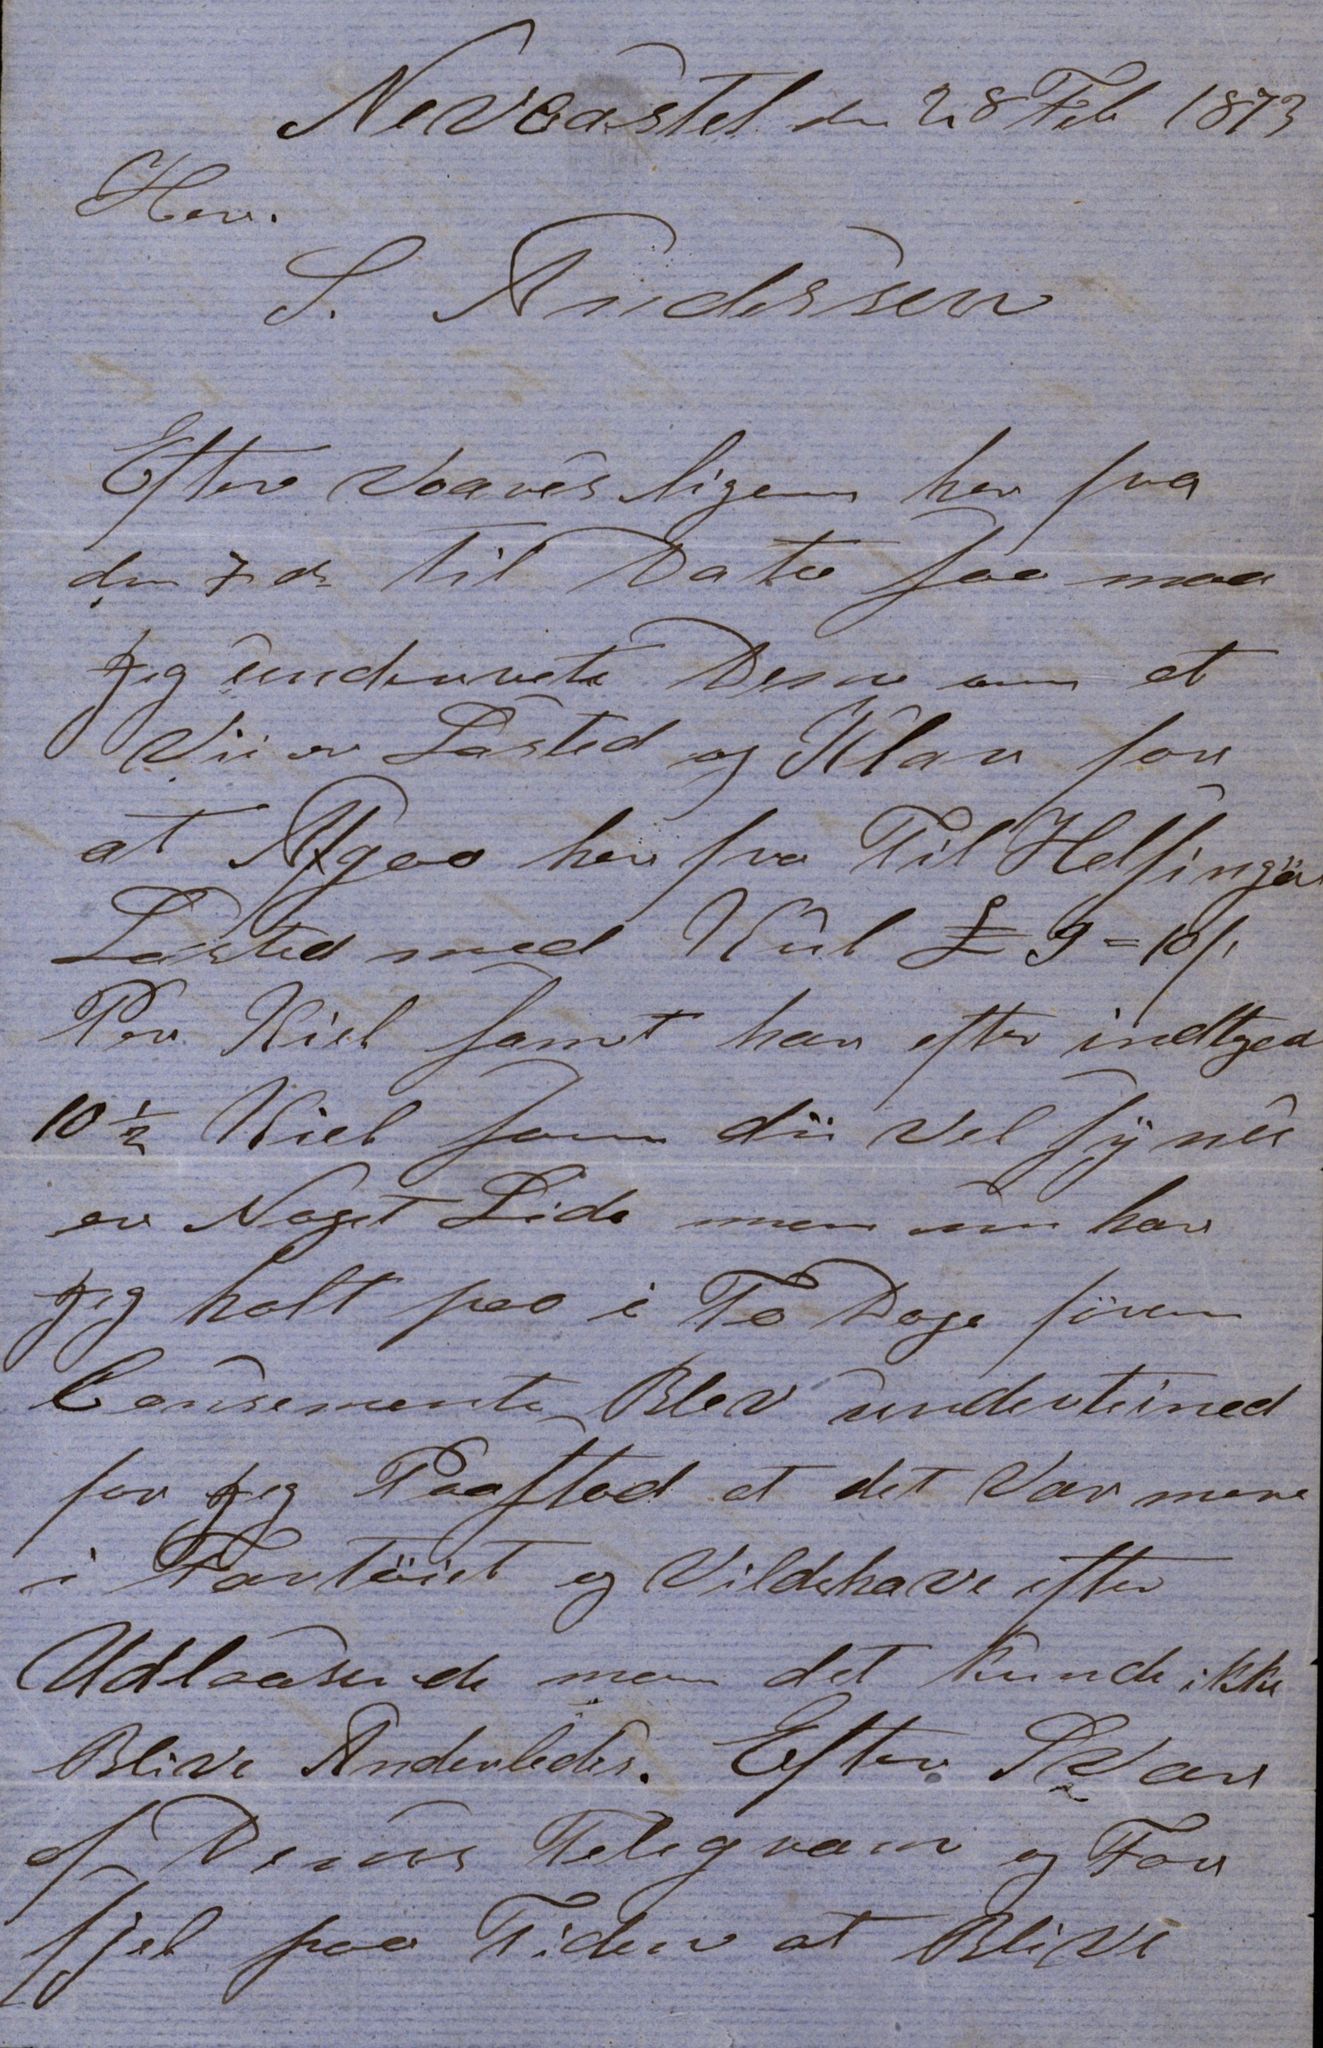 Nevcastel den 28 Feb 1873
Herr.
S. Andersen
Efter Voares ligem her fra
den 7 ds til Dato saa maa
jeg underrete Dem om at
Vii er Lasted og Klar for
at Afgaa her fra Til Helsingör
Lasted med Kul £ 9=10/.
Per Kiel samt har efter indtged
10 1/2 Kiel som dii vel synes
er Noget Lide men nu har
jeg holt paa i To Dage förem
Consemente Blev undertined
for jeg Paastod at det Var mere
i Fartöiet og Vildehave efter
Udlaasende men det kunde ikke
Blive Anderledes. Efter SVar
af Deres Telegram og For
sjel paa Tiden at Blive